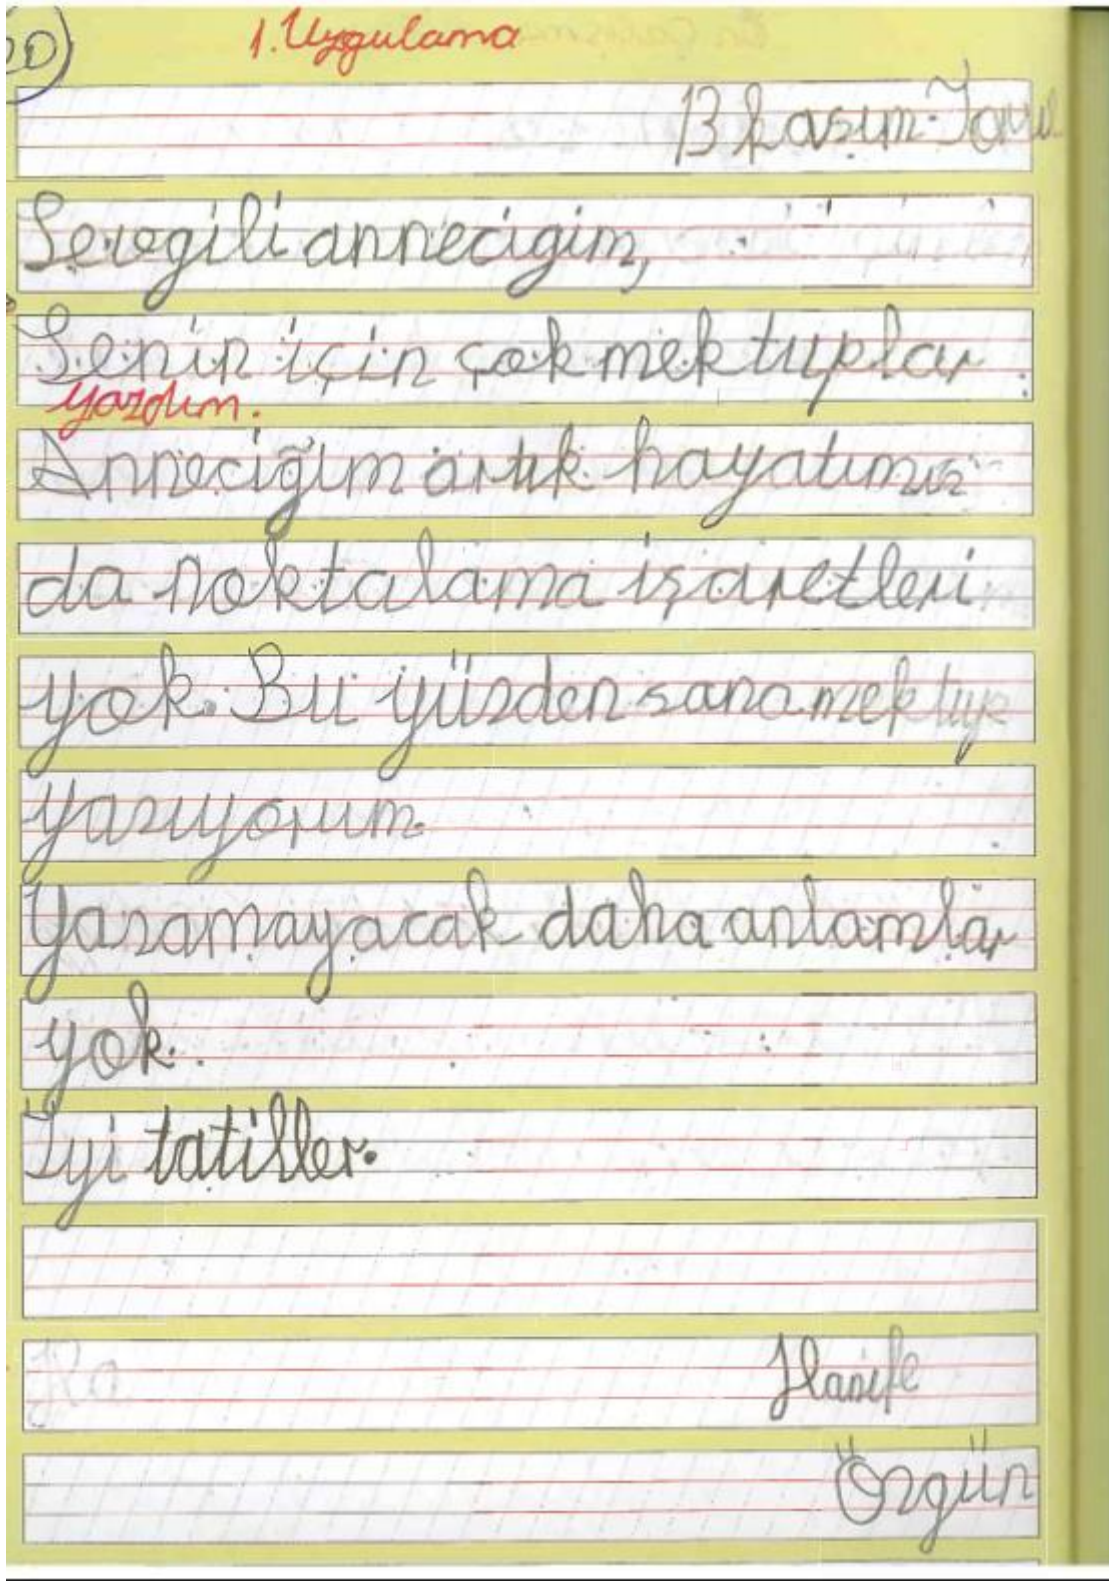 1. Uygulama
13 Kasım
Sevegili annecigim,
Senin için çok mektuplar
yazdım.
Anneciğim artık hayatımız
da noktalama işaretleri
yok. Bu yüzden sana mektup
yazıyorum.
Yazamayacak daha anlamlar
yok.
İyi tatiller.
Hanife
Özgün